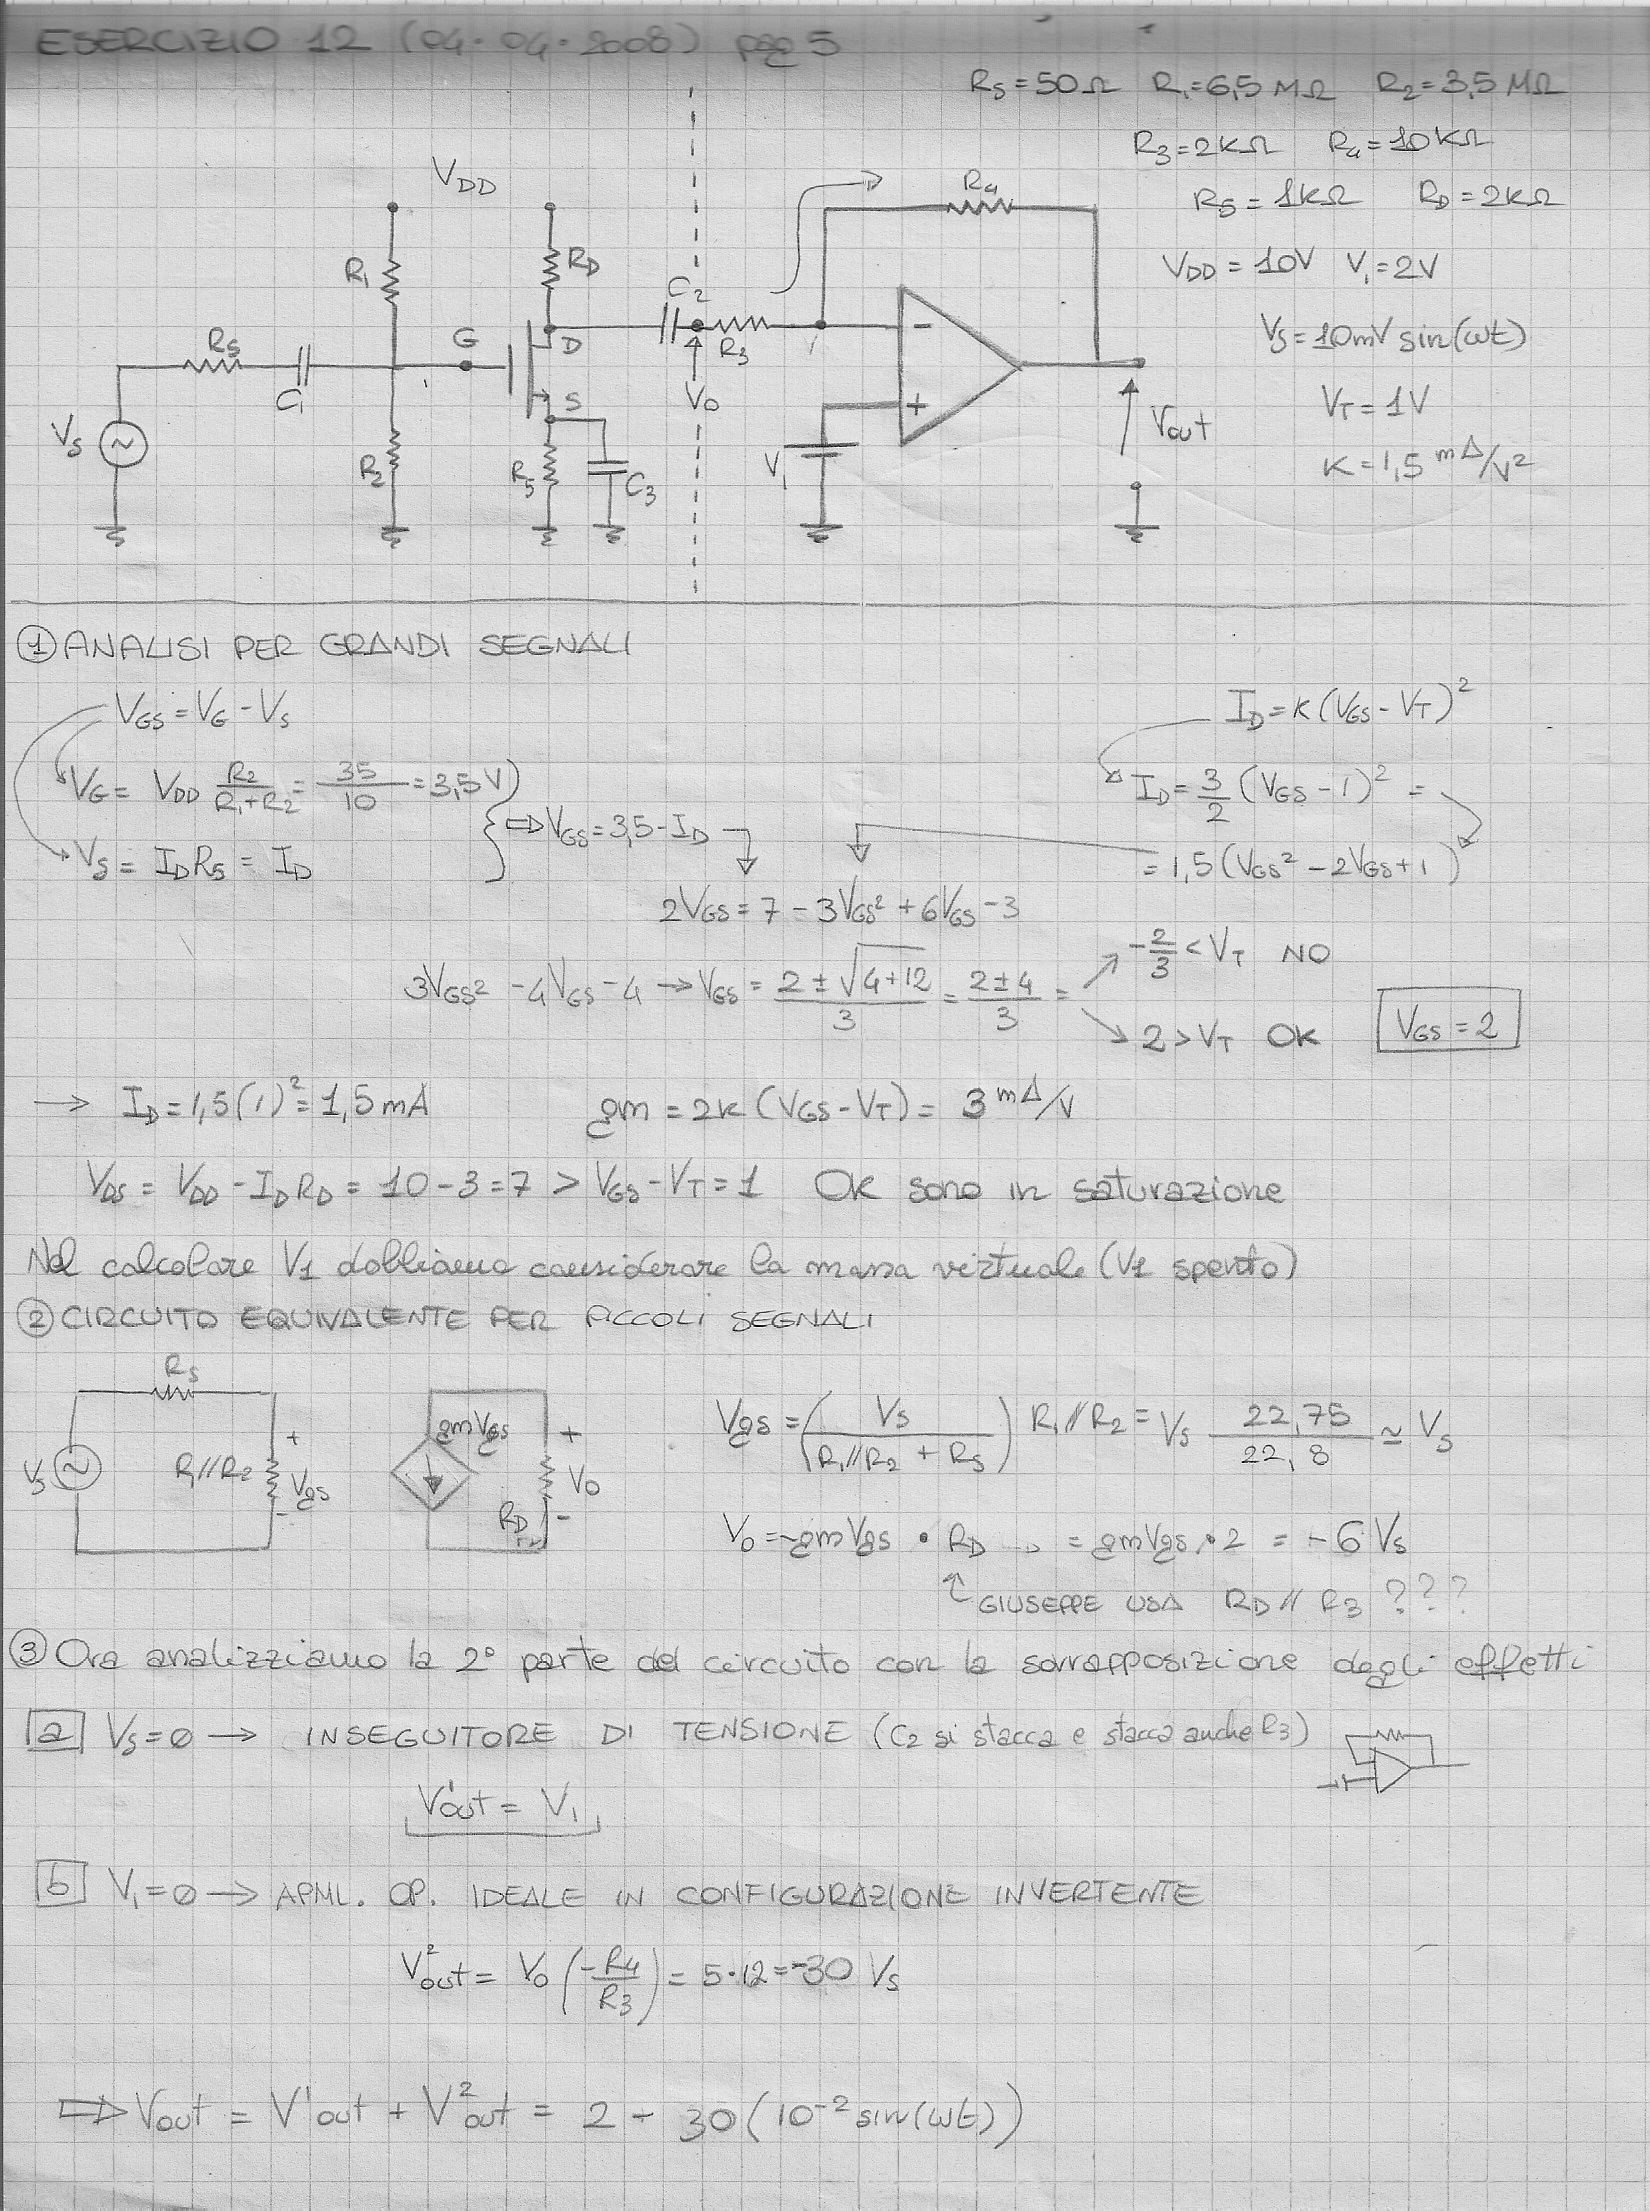 ESERCIZIO 12 (04.04.2008) pag 5
RS=50Ω R1=6,5 MΩ R2=3,5 MΩ
R3=2KΩ R4=10KΩ
R5=1KΩ RD=2KΩ
VDD=10V V1=2V
VS=10mV sin(ωt)
VT=1V
K=1,5 mA/V²
VDD
R1
RD
C2
R4
RS
G
D
R3
C1
S
V0
VS
R2
R5
C3
V1
Vout
- +
① ANALISI PER GRANDI SEGNALI
VGS=VG-VS
ID=K(VGS-VT)²
VG= VDD R2/(R1+R2) = 35/10 =3,5V
ID=3/2 (VGS-1)² =
⇨VGS=3,5-ID
VS= IDRS= ID
=1,5(VGS²-2VGS+1)
2VGS=7-3VGS²+6VGS-3
3VGS²-4VGS-4 → VGS= (2±√(4+12))/3 = (2±4)/3 =
-2/3 < VT NO
2>VT OK
VGS=2
→ ID=1,5(1)²=1,5mA gm=2K(VGS-VT)= 3 mA/V
VDS= VDD-IDRD=10-3=7 > VGS-VT=1 OK sono in saturazione
Nel calcolare V1 dobbiamo considerare la massa virtuale (V1 spento)
② CIRCUITO EQUIVALENTE PER PICCOLI SEGNALI
RS
VS
R1//R2
+ Vgs -
gmVgs
RD
+ V0 -
Vgs=(VS/(R1//R2+RS)) R1//R2= VS 22,75/22,8 ≃ VS
V0=-gmVgs • RD = gmVgs•2 = -6 VS
↑ GIUSEPPE USA RD//R3 ???
③ Ora analizziamo la 2° parte del circuito con la sovrapposizione degli effetti
a VS=0 → INSEGUITORE DI TENSIONE (C2 si stacca e stacca anche R3)
V¹out = V1
b V1=0 → APML. OP. IDEALE IN CONFIGURAZIONE INVERTENTE
V²out= V0 (-R4/R3)= 5·12=-30 VS
⇨ Vout = V¹out + V²out = 2 - 30(10⁻² sin(ωt))